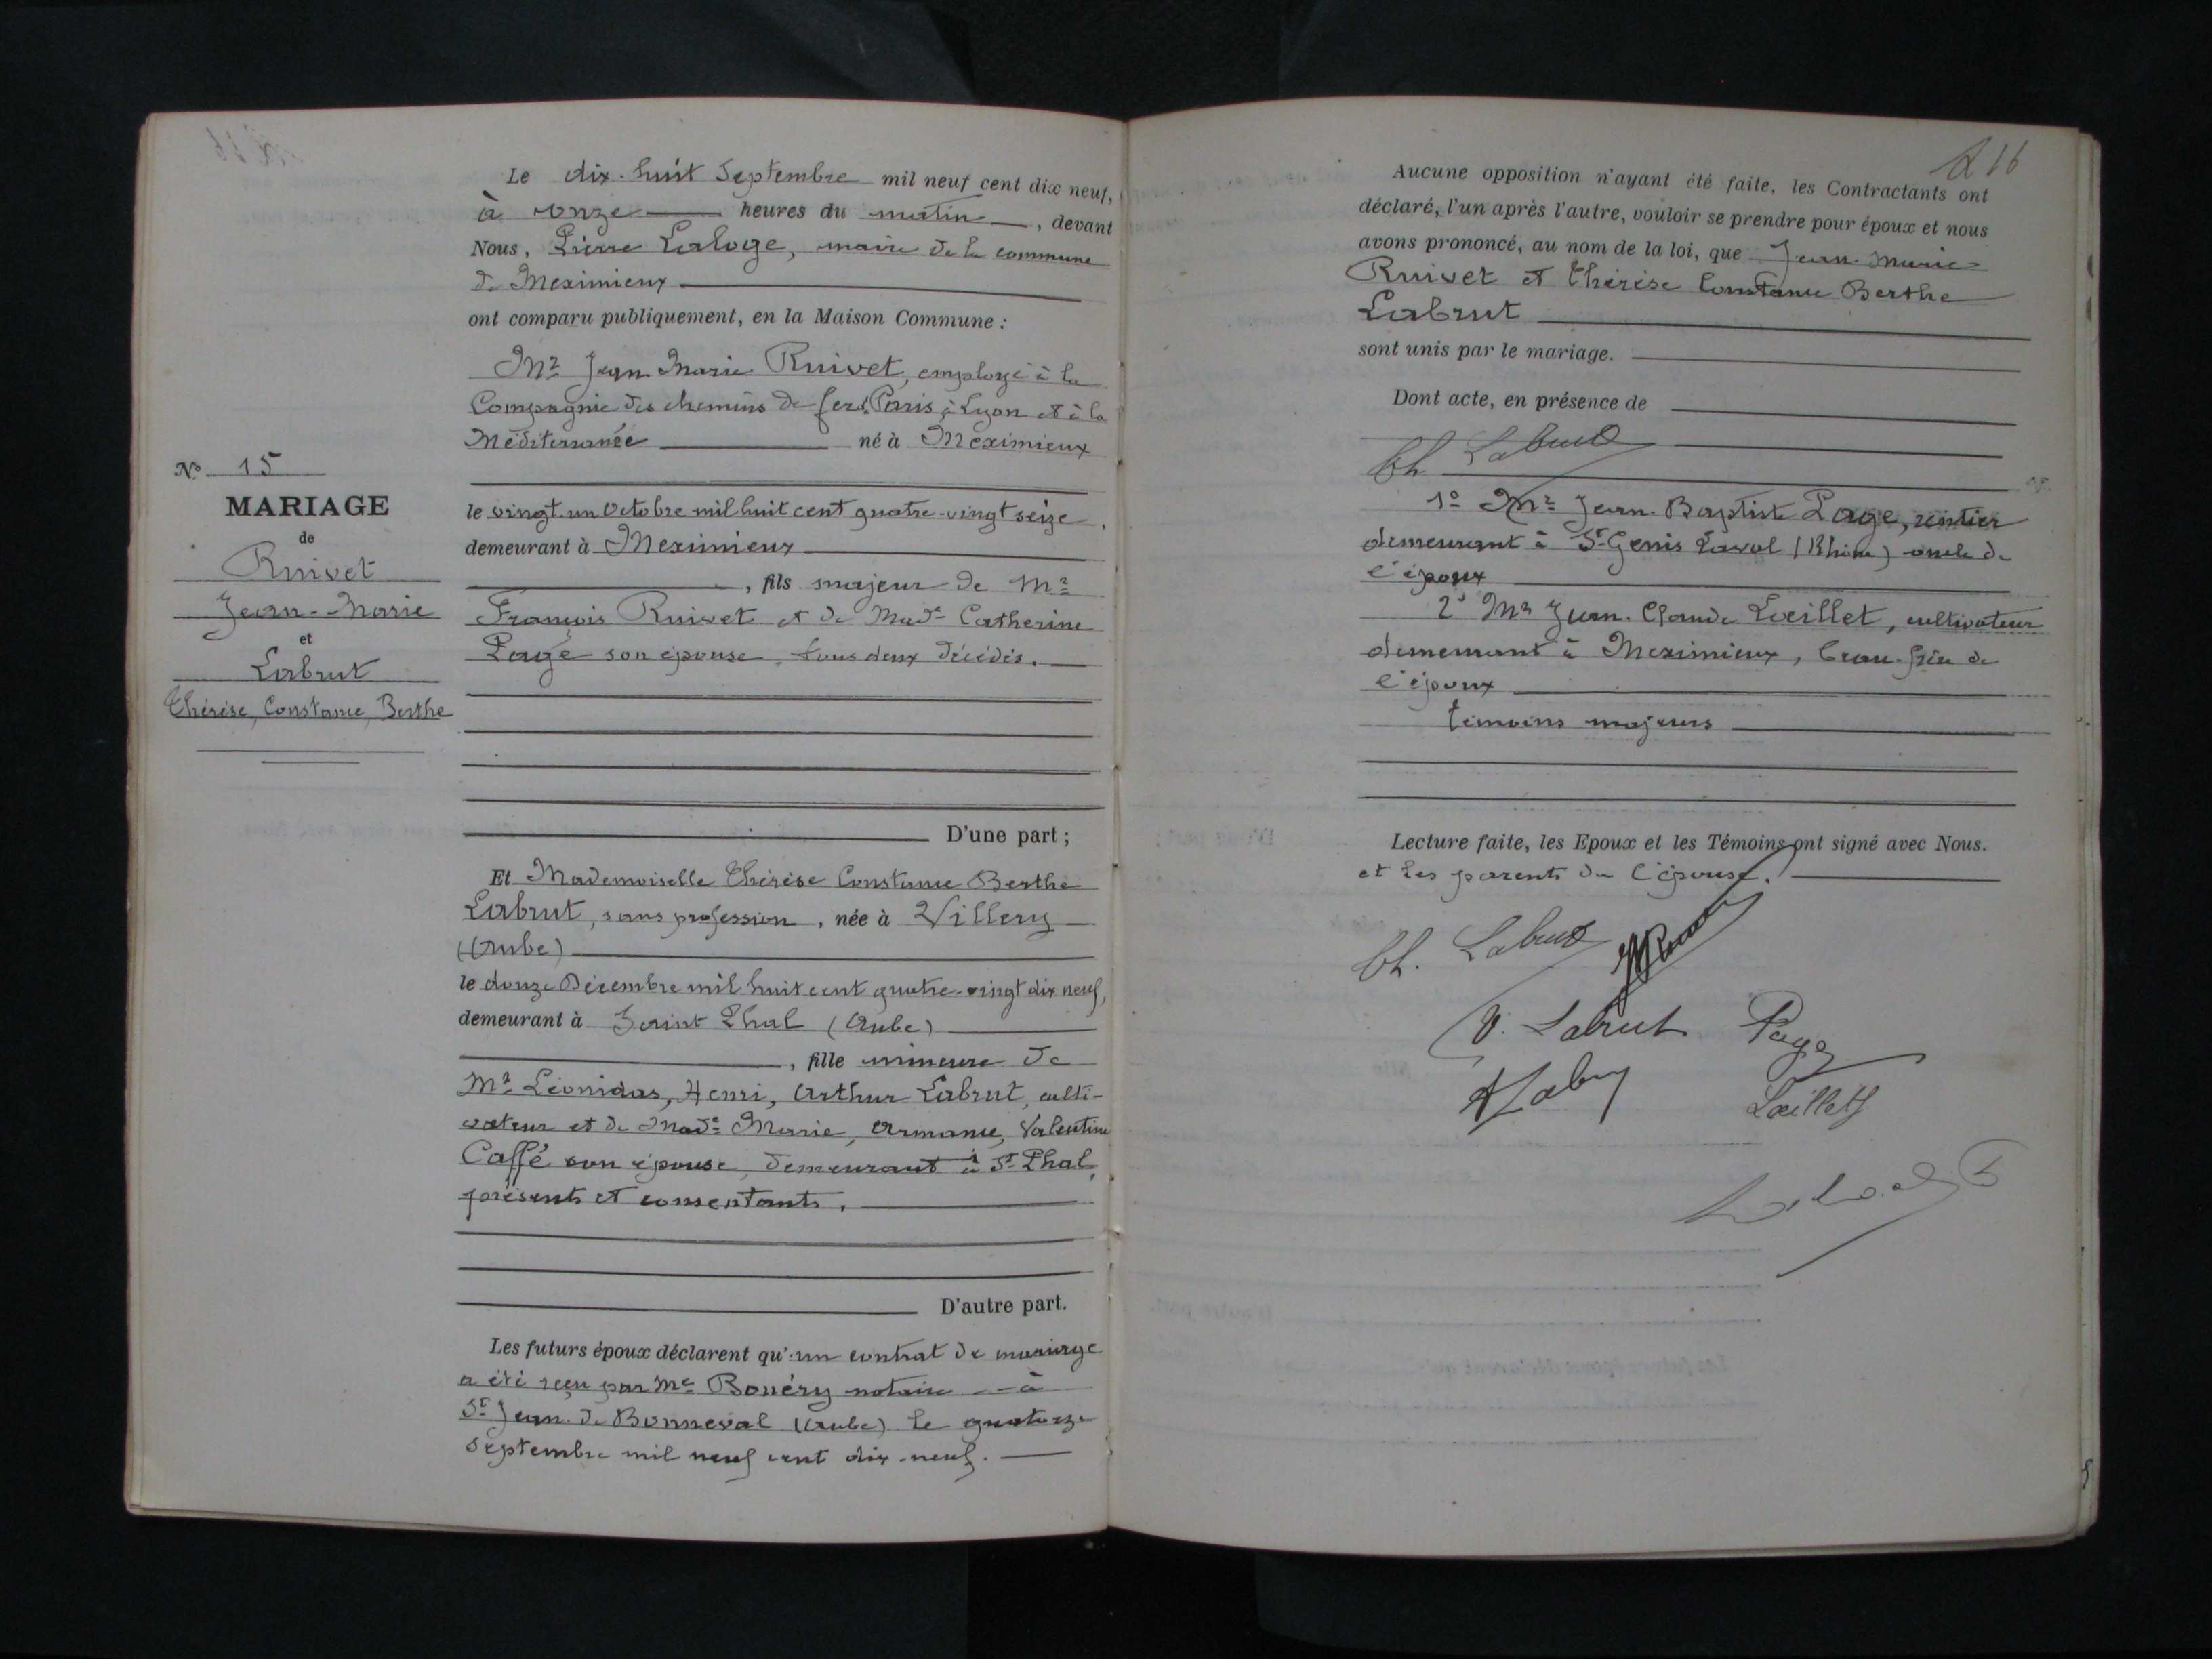 N° 15
MARIAGE
de
Ruivet
Jean-Marie
et
Labrut
Thérèse, Constance, Berthe
Le dix-huit Septembre mil neuf cent dix neuf,
à onze heures du matin, devant
Nous, Pierre Laloge, maire de la commune
de Meximieux
ont comparu publiquement, en la Maison Commune :
Mr Jean Marie Ruivet, employé à la
Compagnie des chemins de fer de Paris à Lyon et à la
Méditerranée né à Meximieux
le vingt-un Octobre mil huit cent quatre-vingt seize,
demeurant à Meximieux
, fils majeur de Mr
François Ruivet et de Made Catherine
Page son épouse, tous deux décédés.
D'une part ;
Et Mademoiselle Thérèse Constance Berthe
Labrut, sans profession, née à Villery
(Aube)
le douze Décembre mil huit cent quatre-vingt dix neuf,
demeurant à Saint Phal (Aube)
, fille mineure de
Mr Léonidas, Henri, Arthur Labrut, culti-
vateur et de Made Marie, Armance, Valentine
Caffé son épouse, demeurant à St Phal,
présents et consentants.
D'autre part.
Les futurs époux déclarent qu'un contrat de mariage
a été reçu par Me Bouéry notaire à
St Jean de Bonneval (Aube) le quatorze
septembre mil neuf cent dix-neuf.
216
Aucune opposition n'ayant été faite, les Contractants ont
déclaré, l'un après l'autre, vouloir se prendre pour époux et nous
avons prononcé, au nom de la loi, que Jean Marie
Ruivet et Thérèse Constance Berthe
Labrut
sont unis par le mariage.
Dont acte, en présence de
Th Labrut
1° Mr Jean-Baptiste Page, rentier
demeurant à St Genis Laval (Rhône) oncle de
l'époux
2° Mr Jean-Claude Lœillet, cultivateur
demeurant à Meximieux, beau-frère de
l'époux
témoins majeurs
Lecture faite, les Epoux et les Témoins ont signé avec Nous.
et les parents de l'épouse.
Th. Labrut
V. Labrut Page
Lœillet